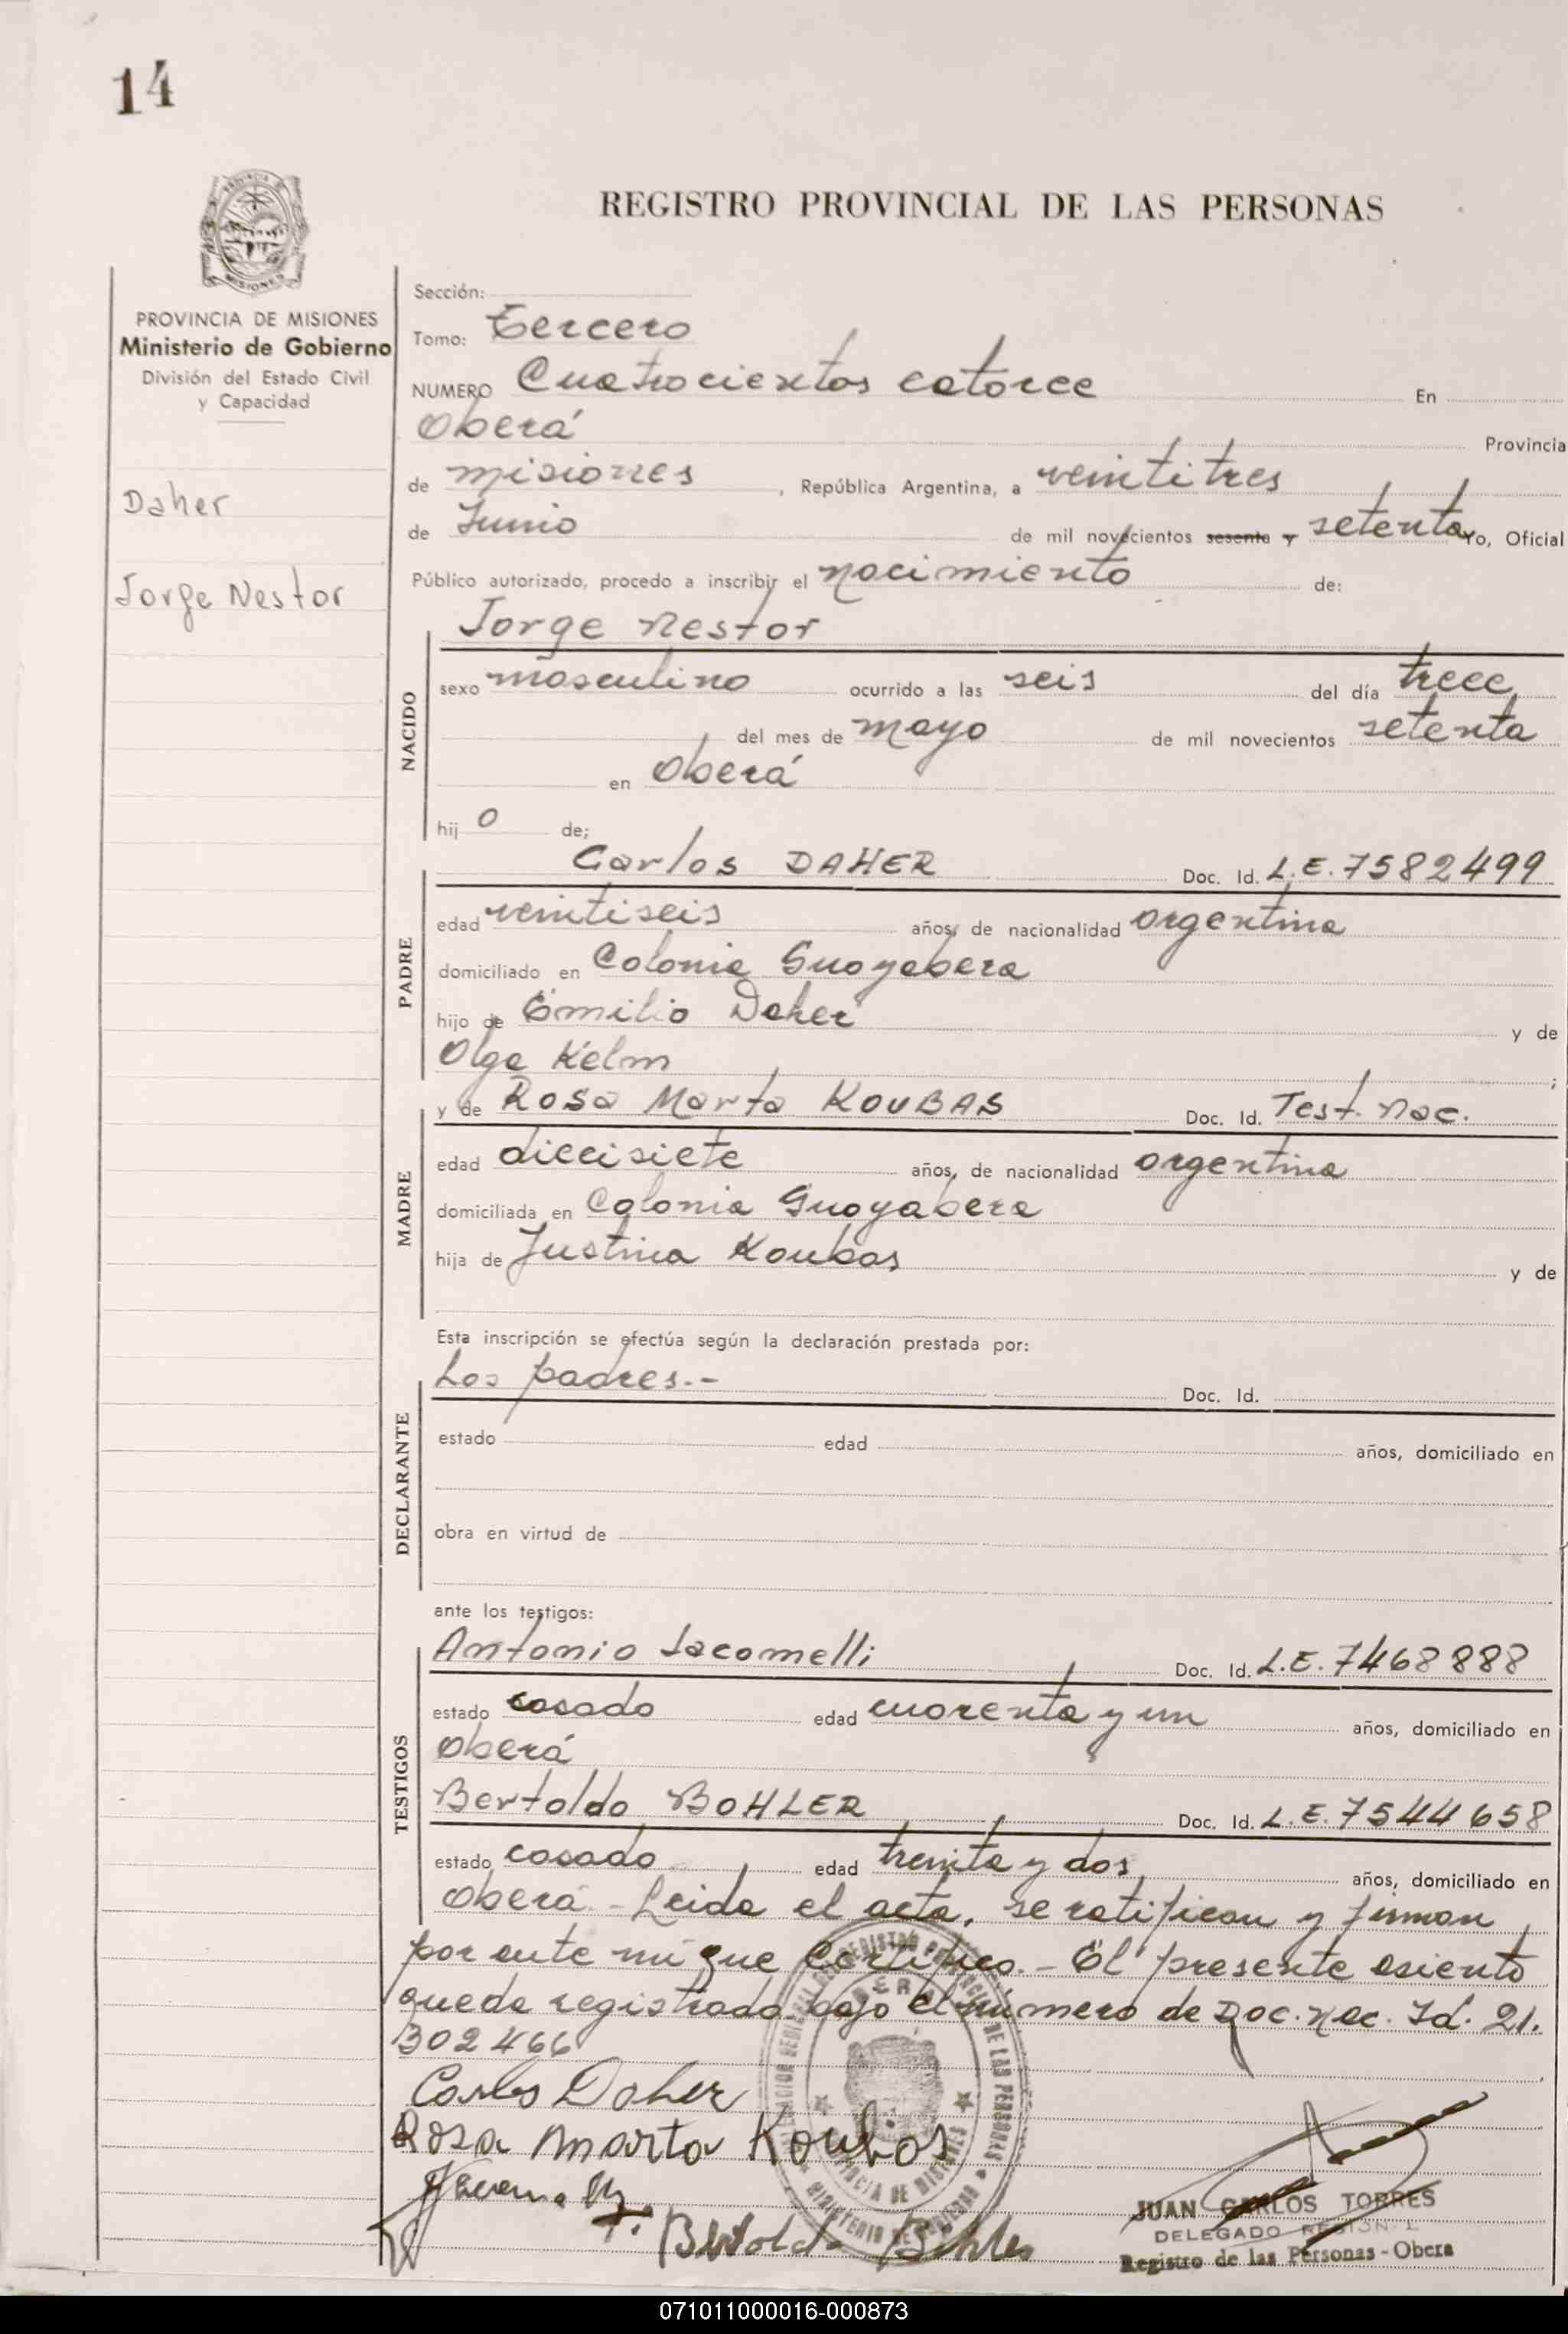 14
REGISTRO PROVINCIAL DE LAS PERSONAS
MISIONES
PROVINCIA DE MISIONES
Ministerio de Gobierno
División del Estado Civil
y Capacidad
Daher
Jorge Nestor
Sección:
Tomo: Tercero
NUMERO Cuatrocientos catorce En
Oberá Provincia
de misiones, República Argentina, a veintitres
de Junio de mil novecientos sesenta y setenta Yo, Oficial
Público autorizado, procedo a inscribir el nacimiento de:
Jorge Nestor
NACIDO
sexo masculino ocurrido a las seis del día trece
del mes de mayo de mil novecientos setenta
en Oberá
hij o de;
Carlos DAHER Doc. Id. L.E. 7582499
PADRE
edad veintiseis años, de nacionalidad argentina
domiciliado en Colonia Guayabera
hijo de Emilio Daher y de
Olga Kelm ;
y de Rosa Marta KOUBAS Doc. Id. Test. nac.
MADRE
edad diecisiete años, de nacionalidad argentina
domiciliada en Colonia Guayabera
hija de Justina Koubas y de
Esta inscripción se efectúa según la declaración prestada por:
Los padres.- Doc. Id.
DECLARANTE
estado edad años, domiciliado en
obra en virtud de
ante los testigos:
Antonio Iacomelli Doc. Id. L.E. 7468888
TESTIGOS
estado casado edad cuarenta y un años, domiciliado en
Oberá
Bertoldo BOHLER Doc. Id. L.E. 7544658
estado casado edad treinta y dos años, domiciliado en
Oberá - Leida el acta, se ratifican y firman
por ante mi que Certifico.- El presente asiento
queda registrado bajo el número de Doc. Nac. Id. 21.
302466
Carlos Daher
Rosa Marta Koubas
Bertoldo Bohler
JUAN CARLOS TORRES
DELEGADO REGIONAL
Registro de las Personas - Obera
071011000016-000873